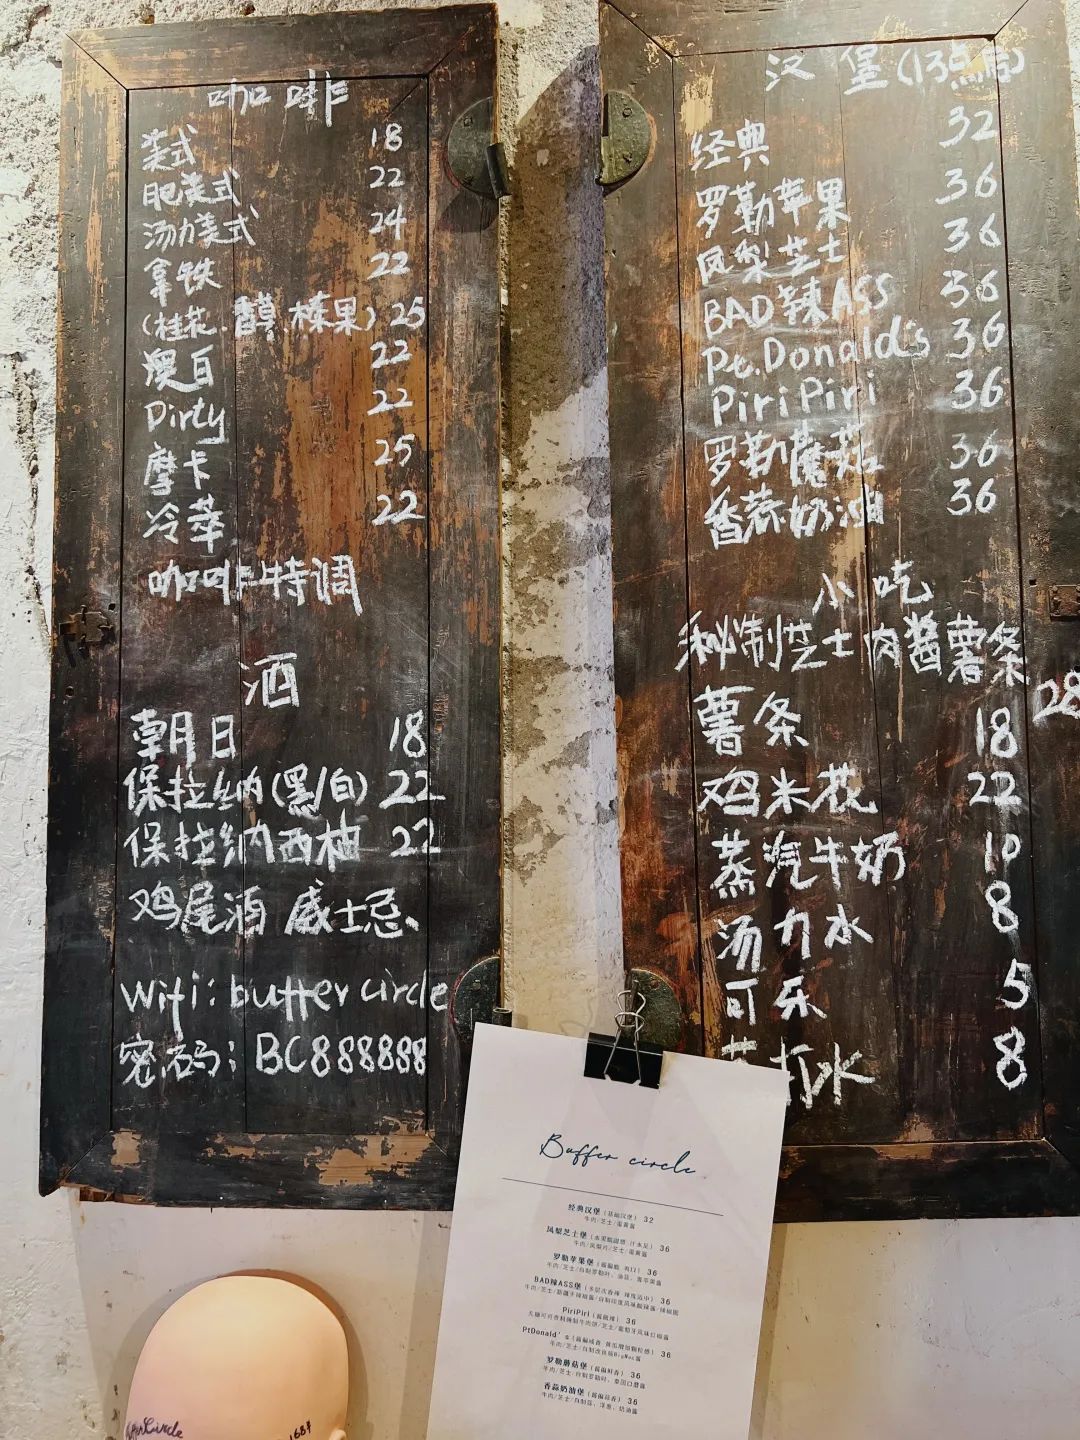 咖啡
美式 18
肥美式 22
汤力美式 24
拿铁 22
(桂花.香草.榛果) 25
澳白 22
Dirty 22
摩卡 25
冷萃 22
咖啡特调
酒
朝日 18
保拉纳(黑/白) 22
保拉纳西柚 22
鸡尾酒 威士忌、
Wifi: butter circle
密码: BC888888
汉堡(13点后)
经典 32
罗勒苹果 36
凤梨芝士 36
BAD辣ASS 36
Pt.Donald's 36
PiriPiri 36
罗勒蘑菇 36
香蒜奶油 36
小吃
秘制芝士肉酱薯条 28
薯条 18
鸡米花 22
蒸汽牛奶 10
汤力水 8
可乐 5
苏打水 8
Buffer circle
经典汉堡(基础汉堡) 32
牛肉/芝士/蛋黄酱
凤梨芝士堡(水果酸甜感 汁水足) 36
牛肉/凤梨片/芝士/蛋黄酱
罗勒苹果堡(酱偏酸 爽口) 36
BAD辣ASS堡(多层次香辣 辣度适中) 36
PiriPiri(酱偏辣) 36
PtDonald's 36
罗勒蘑菇堡(酱偏鲜香) 36
香蒜奶油堡(酱偏蒜香) 36